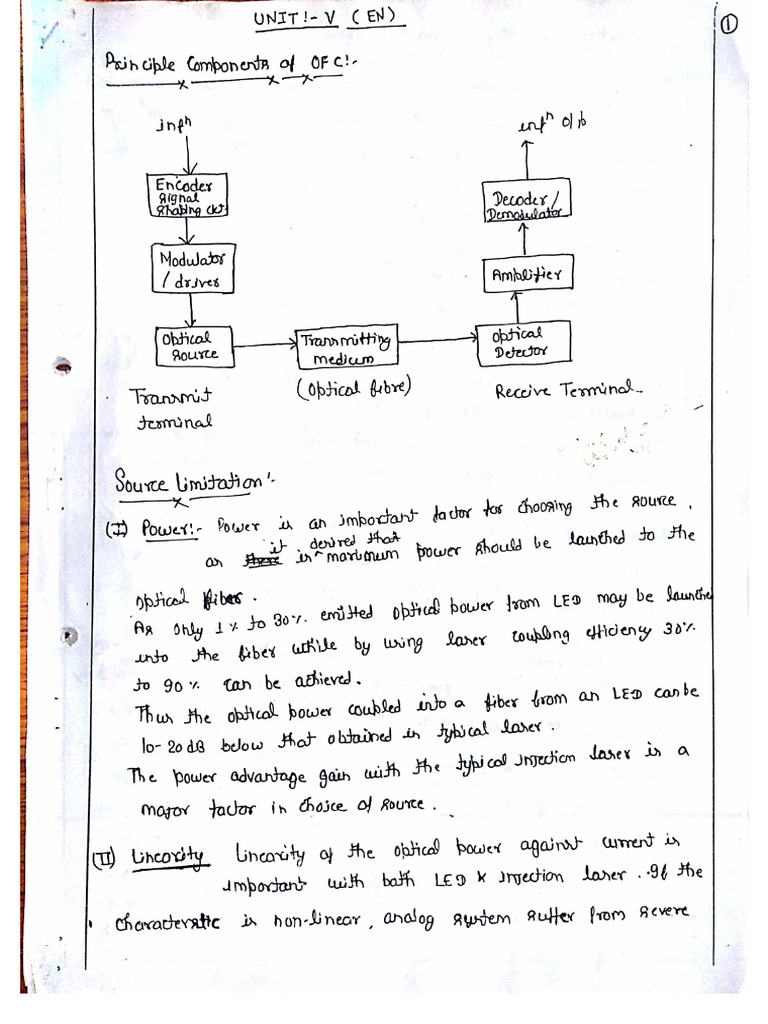 UNIT:- V (EN)
①
Principle Components of OFC:-
infⁿ
infⁿ o/p
Encoder
signal
shaping ckt
Decoder/
Demodulator
Modulator
/ driver
Amplifier
Optical
source
Transmitting
medium
Optical
Detector
Transmit
terminal
(Optical fibre)
Receive Terminal
Source limitation:-
(I) Power:- Power is an important factor for choosing the source,
as it is ^ desired that maximum power should be launched to the
optical fiber.
As only 1% to 30% emitted optical power from LED may be launche
into the fiber while by using laser coupling efficiency 30%
to 90% can be achieved.
Thus the optical power coupled into a fiber from an LED can be
10-20 dB below that obtained in typical laser.
The power advantage gain with the typical injection laser is a
major factor in choice of source.
(II) Linearity Linearity of the optical power against current is
important with both LED & injection laser. If the
characteristic is non-linear, analog system suffer from severe